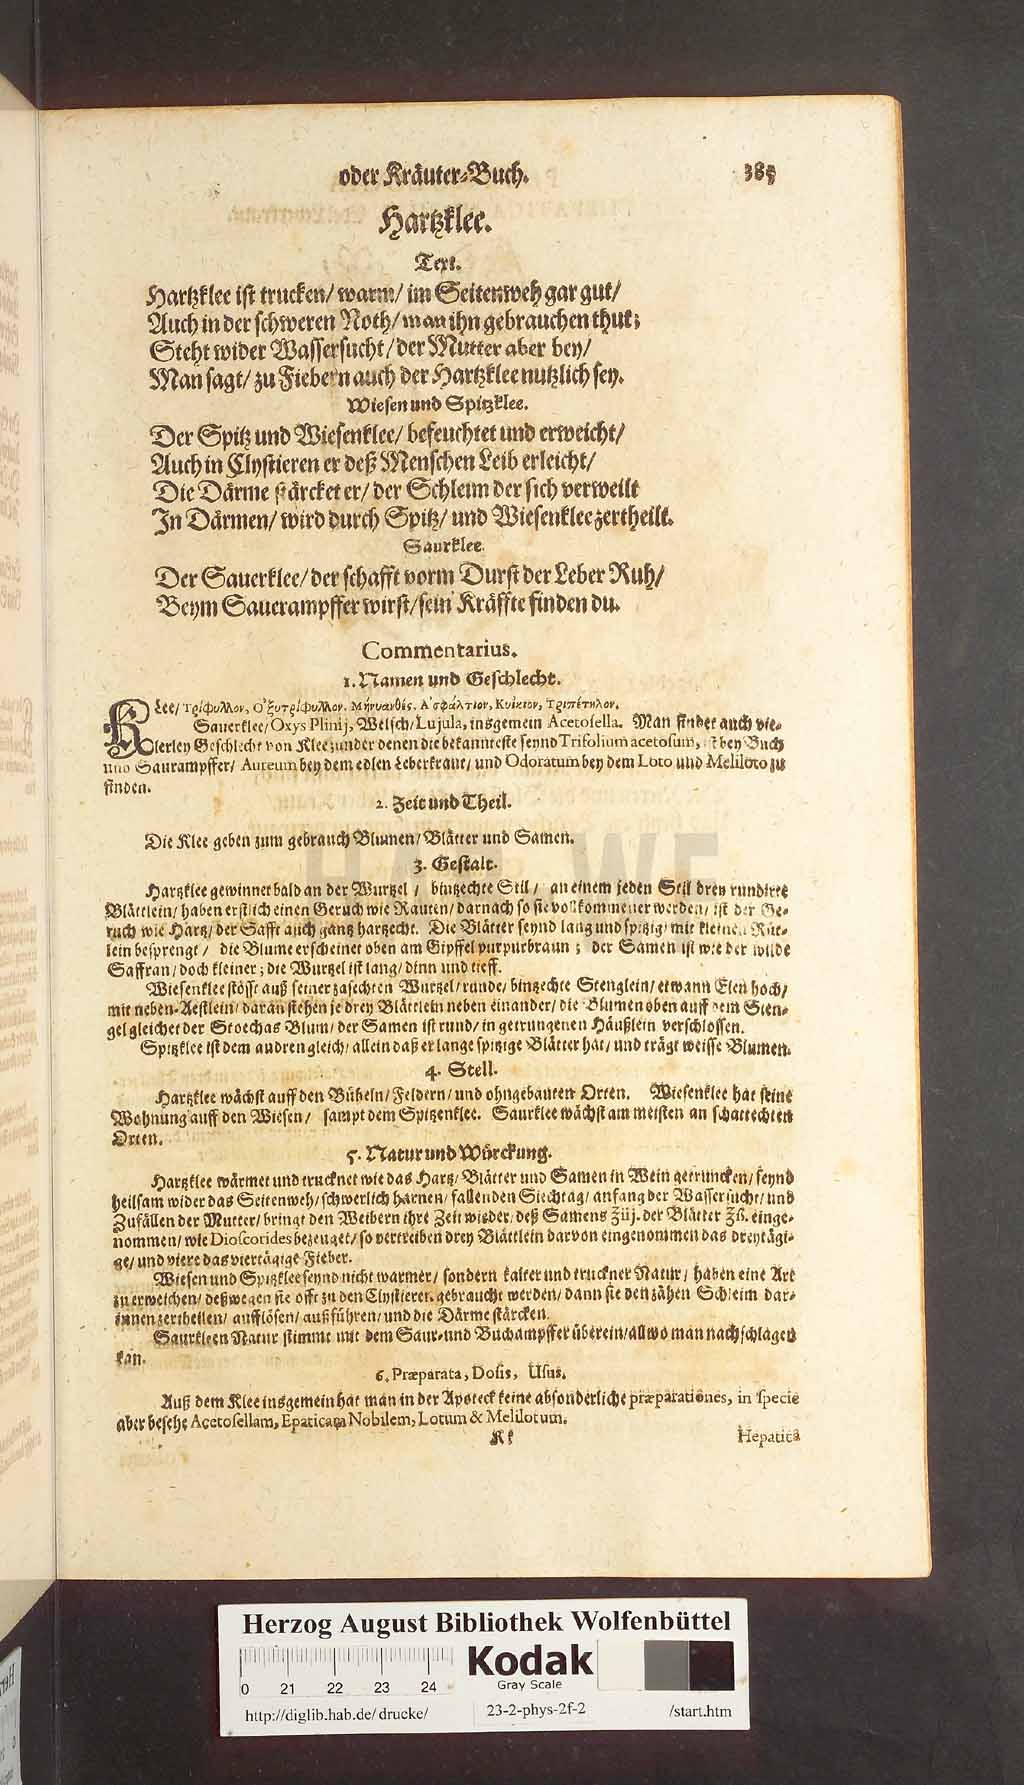 oder Kräuter-Buch. 385
Hartzklee.
Text.
Hartzklee ist trucken/ warm/ im Seitenweh gar gut/
Auch in der schweren Noth/ man ihn gebrauchen thut;
Steht wider Wassersucht/ der Mutter aber bey/
Man sagt/ zu Fiebern auch der Hartzklee nutzlich sey.
Wiesen und Spitzklee.
Der Spitz und Wiesenklee/ befeuchtet und erweicht/
Auch in Clystieren er deß Menschen Leib erleicht/
Die Därme stärcket er/ der Schleim der sich verweilt
In Därmen/ wird durch Spitz/ und Wiesenklee zertheilt.
Saurklee.
Der Sauerklee/ der schafft vorm Durst der Leber Ruh/
Beym Sauerampffer wirst/ sein Kräffte finden du.
Commentarius.
1. Namen und Geschlecht.
Klee/ Τρίφυλλον, Ὀξυτρίφυλλον. Μήνυανθές. Ἀσφάλτιον, Κνίκιον, Τριπέτηλον.
Sauerklee/ Oxys Plinij, Welsch/ Lujula, insgemein Acetosella. Man findet auch vie-
lerley Geschlecht von Klee/ under denen die bekannteste seynd Trifolium acetosum, ist bey Buch
und Saurampffer/ Aureum bey dem edlen Leberkraut/ und Odoratum bey dem Loto und Meliloto zu
finden.
2. Zeit und Theil.
Die Klee geben zum gebrauch Blumen/ Blätter und Samen.
3. Gestalt.
Hartzklee gewinnet bald an der Wurtzel/ bintzechte Stil/ an einem jeden Stil drey rundirte
Blättlein/ haben erstlich einen Geruch wie Rauten/ darnach so sie vollkommener werden/ ist der Ge-
ruch wie Hartz/ der Safft auch gantz hartzecht. Die Blätter seynd lang und spitzig/ mit kleinen Rüt-
lein besprengt/ die Blume erscheinet oben am Gipffel purpurbraun; der Samen ist wie der wilde
Saffran/ doch kleiner; die Wurtzel ist lang/ dinn und tieff.
Wiesenklee stösst auß seiner zasechten Wurtzel/ runde/ bintzechte Stenglein/ etwann Elen hoch/
mit neben-Aestlein/ daran stehen je drey Blättlein neben einander/ die Blumen oben auff dem Sten-
gel gleichet der Stoechas Blum/ der Samen ist rund/ in getrungenen Häußlein verschlossen.
Spitzklee ist dem andren gleich/ allein daß er lange spitzige Blätter hat/ und trägt weisse Blumen.
4. Stell.
Hartzklee wächst auff den Büheln/ Feldern/ und ohngebauten Orten. Wiesenklee hat seine
Wohnung auff den Wiesen/ sampt dem Spitzenklee. Saurklee wächst am meisten an schattechten
Orten.
5. Natur und Würckung.
Hartzklee wärmet und trucknet wie das Hartz/ Blätter und Samen in Wein getruncken/ seynd
heilsam wider das Seitenweh/ schwerlich harnen/ fallenden Siechtag/ anfang der Wassersucht/ und
Zufällen der Mutter/ bringt den Weibern ihre Zeit wieder/ deß Samens ʒiij. der Blätter ʒß. einge-
nommen/ wie Dioscorides bezeuget/ so vertreiben drey Blättlein darvon eingenommen das dreytägi-
ge/ und viere das viertägige Fieber.
Wiesen und Spitzklee seynd nicht warmer/ sondern kalter und truckner Natur/ haben eine Art
zu erweichen/ deßwegen sie offt zu den Clystieren gebraucht werden/ dann sie den zähen Schleim dar-
innen zertheilen/ aufflösen/ außführen/ und die Därme stärcken.
Saurkleen Natur stimmt mit dem Saur- und Buchampffer überein/ allwo man nachschlagen
kan.
6. Præparata, Dosis, Usus.
Auß dem Klee insgemein hat man in der Apoteck keine absonderliche præparationes, in specie
aber besehe Acetosellam, Epaticam Nobilem, Lotum & Melilotum.
Kk Hepatica
Herzog August Bibliothek Wolfenbüttel
0 21 22 23 24
Kodak
Gray Scale
http://diglib.hab.de/drucke/ 23-2-phys-2f-2 /start.htm